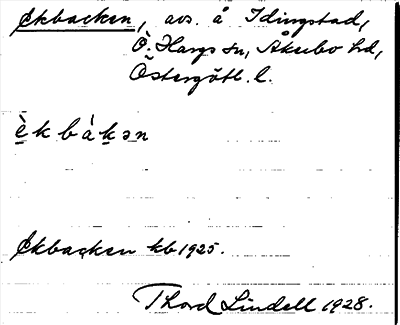 Ekbacken, avs. å Idingstad,
Ö. Hargs sn, Åkerbo hd,
Östergötl. l.
è k b à k ə n
Ekbacken kb 1925.
Thord Lindell 1928.